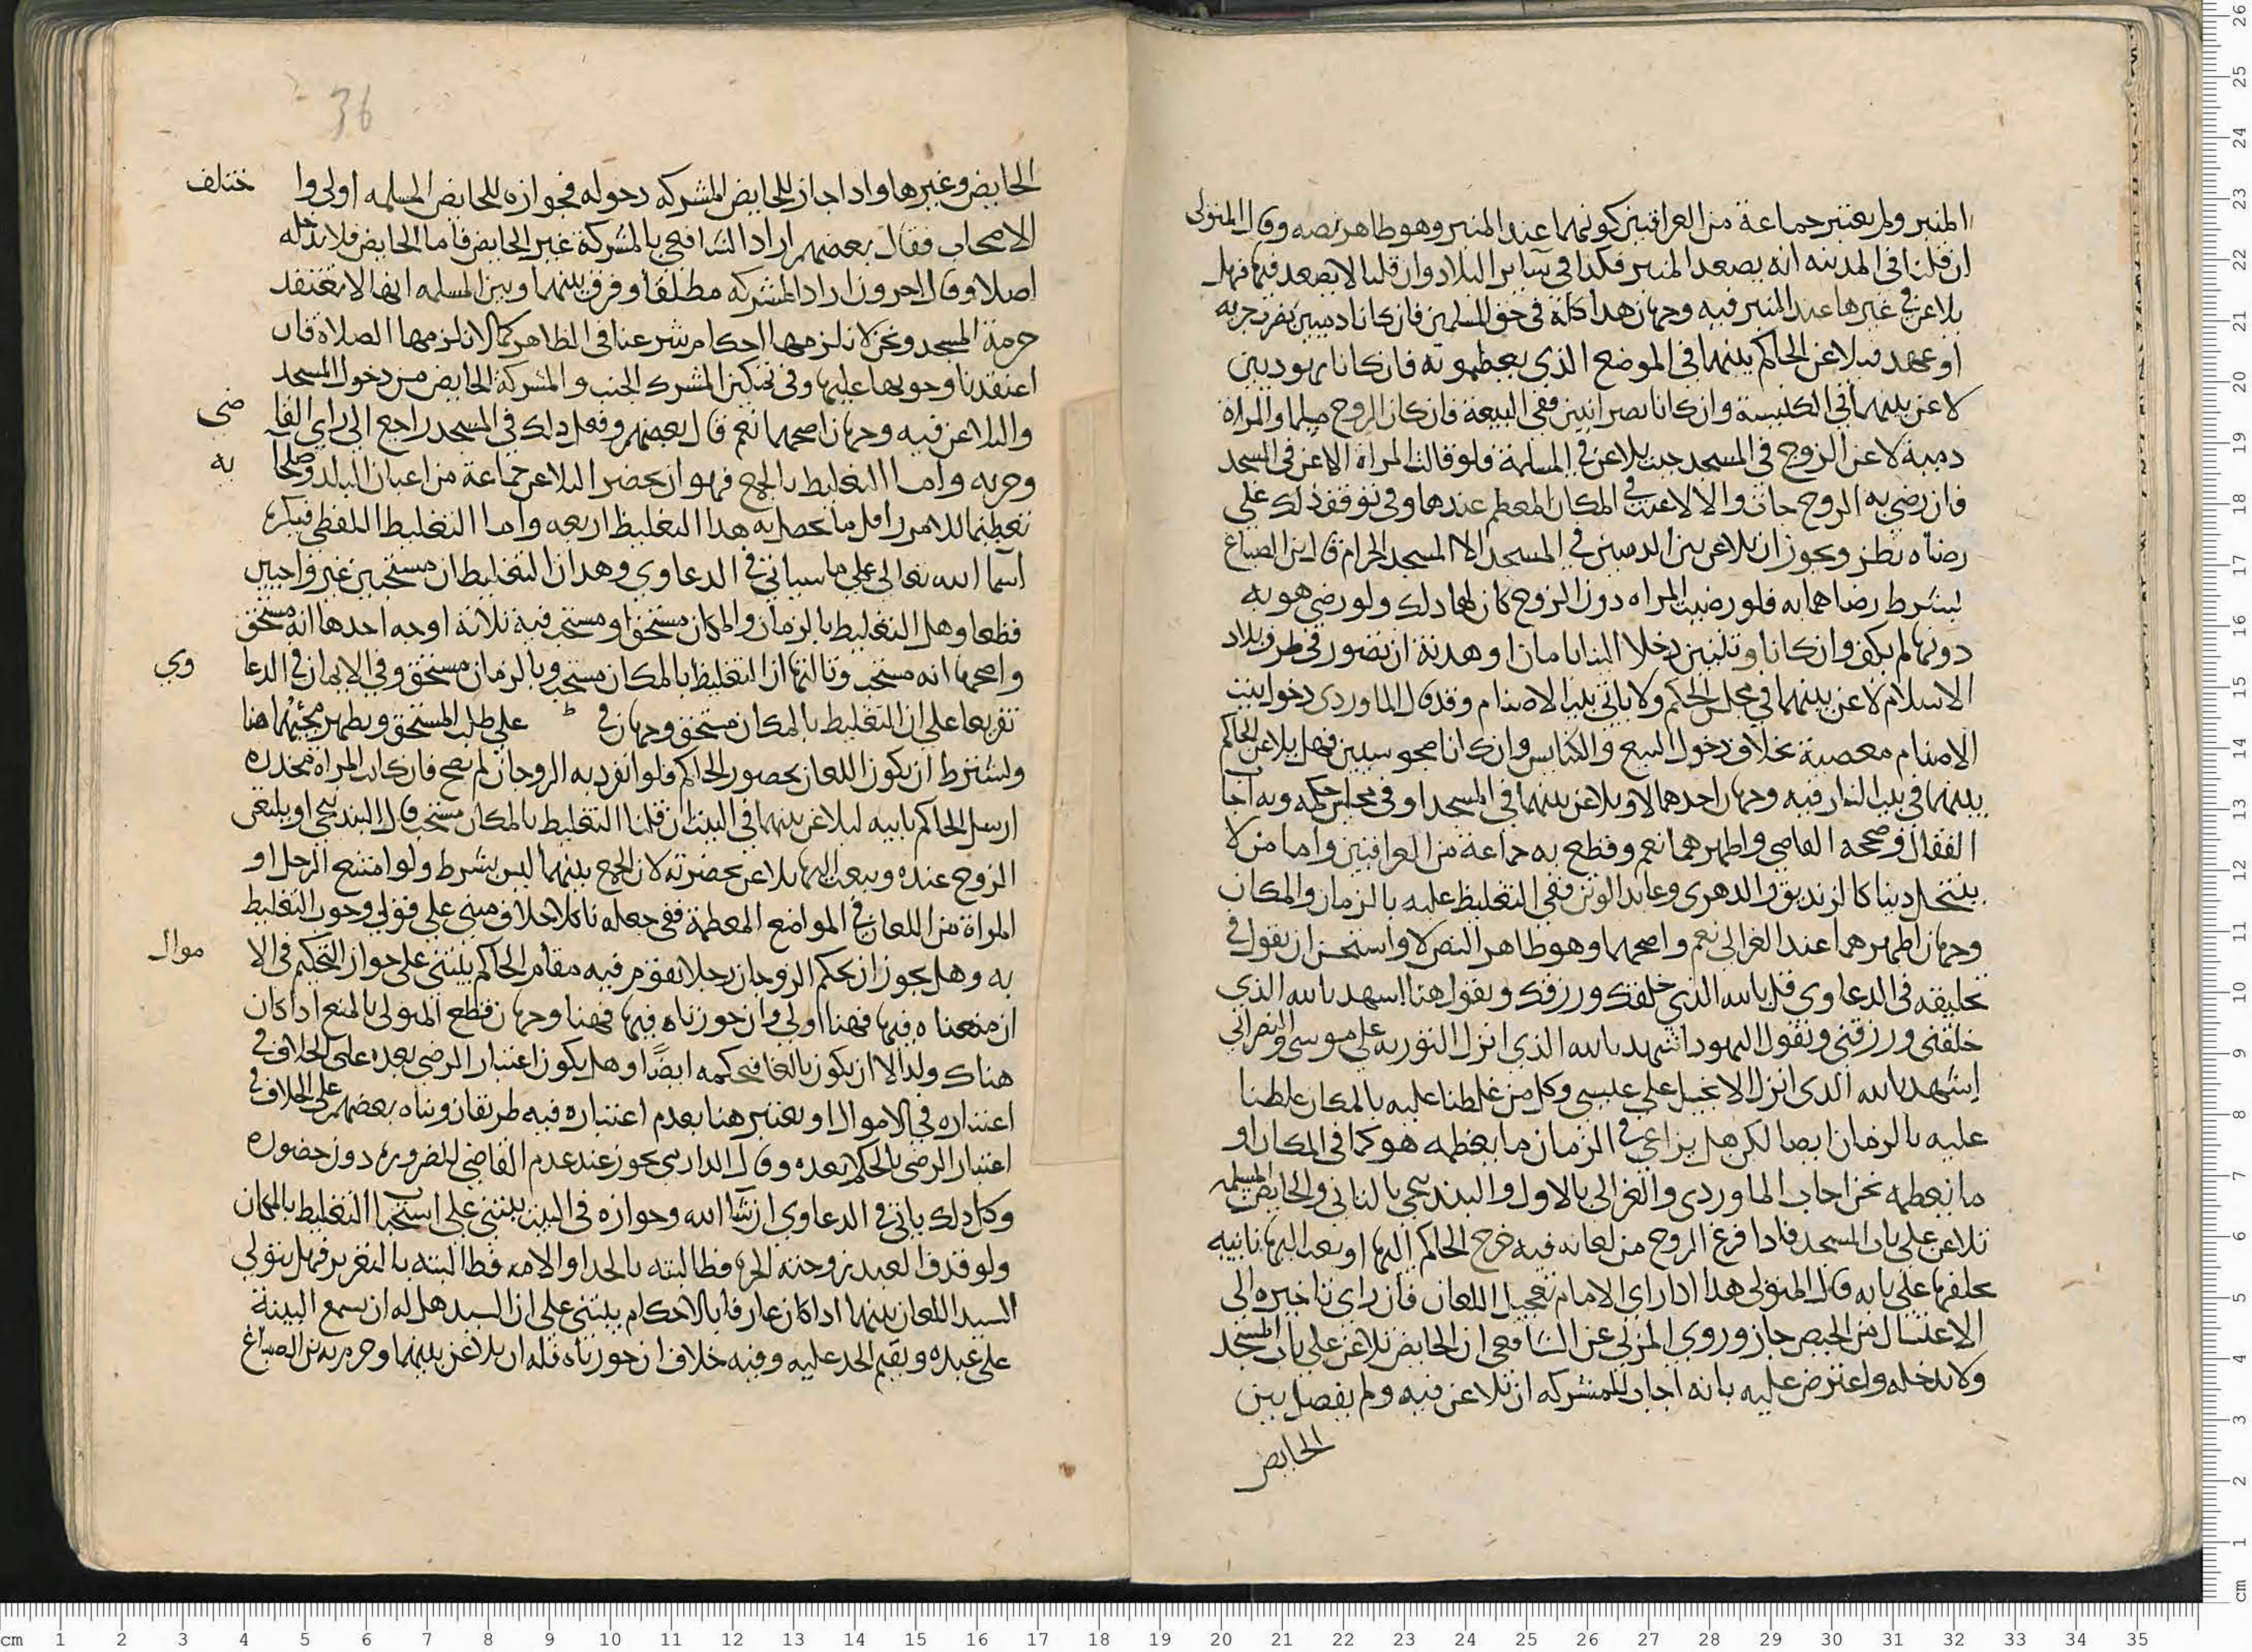 المنبر ولم يعتبر جماعة من العراقيين كونهما عند المنبر وهو ظاهر نصه وقال المتولى
ان قلنا فى المدينه انه يصعد المنبر فكذا في سائر البلاد وان قلنا لا يصعد فيها فهل
يلاعن في غيرها عند المنبر فيه وجهان هذا كله في حق المسلمين فان كانا ذميين بجزيه
او عهد فيلاعن الحاكم بينهما في الموضع الذي يعظمونه فان كانا يهوديين
لاعن بينهما في الكنيسة وان كانا نصرانيين ففي البيعة فان كان الزوج مسلما والمراة
ذمية لاعن الزوج في المسجد حيث يلاعن في المسلمة فلو قالت المراة الاعن في المسجد
فان رضي به الزوج جاز والا لاعنت في المكان المعظم عندها وفي توقف ذلك على
رضاه نظر ويجوز ان يلاعن بين الذميين في المسجد الا المسجد الحرام قال ابن الصباغ
بشرط رضاهما به فلو رضيت المراه دون الزوج كان لها ذلك ولو رضي هو به
دونها لم يكف وان كانا وثنيين دخلا الينا بامان او هدنة ان تصور في طرف بلاد
الاسلام لاعن بينهما في مجلس الحكم ولا ياتي بيت الاصنام وقد قال الماوردى دخوا بيت
الاصنام معصية بخلاف دخول البيع والكنايس وان كانا مجوسيين فهل يلاعن الحاكم
بينهما في بيت النار فيه وجهان احدهما لا ويلاعن بينهما في المسجد او في مجلس حكمه وبه اجاب
القفال وصححه القاضي واظهرهما نعم وقطع به جماعة من العراقيين واما من لا
ينتحل دينا كالزنديق والدهرى وعابد الوثن ففي التغليظ عليه بالزمان والمكان
وجهان اظهرهما عند الغزالى نعم واصحهما وهو ظاهر النص لا واستحسن ان يقول في
تحليفه في الدعاوى قل بالله الذي خلقك ورزقك ويقول هنا اشهد بالله الذي
خلقني ورزقني ويقول اليهود اشهد بالله الذي انزل التوريه على موسى والنصراني
اشهد بالله الذى انزل الانجيل على عيسى وكل من غلظنا عليه بالمكان غلظنا
عليه بالزمان ايضا لكن هل يراعي في الزمان ما يعظمه هو كما في المكان او
ما نعظمه نحن اجاب الماوردى والغزالى بالاول والبندنيجي بالثاني والحايض المسلمه
تلاعن على باب المسجد فاذا فرغ الزوج من لعانه فيه خرج الحاكم اليها او بعث اليها نايبه
يحلفها على بابه قال المتولى هذا اذا راى الامام تعجيل اللعان فان راى تاخيره الى
الاغتسال من الحيض جاز وروي المزني عن الشافعي ان الحايض تلاعن على باب المسجد
ولا تدخله واعترض عليه بانه اجاب للمشركه ان تلاعن فيه ولم يفصل بين
الحايض
36
الحايض وغيرها واذا جاز للحايض المشركه دخوله فجوازه للحايض المسلمه اولى وا ختلف
الاصحاب فقال بعضهم اراد الشافعي بالمشركة غير الحايض فاما الحايض فلا تدخله
اصلا وقال اخرون اراد المشركه مطلقا وفرق بينهما وبين المسلمه انها لا تعتقد
حرمة المسجد ونحن لا نلزمها احكام شرعنا في الظاهر كما لا نلزمها الصلاة فان
اعتقدنا وجوبها عليها وفي تمكين المشرك الجنب والمشركة الحايض من دخول المسجد
والتلاعن فيه وجهان اصحهما نعم قال بعضهم وفعل ذلك في المسجد راجع الى راي القا ضى
وحزبه واما التغليظ بالجمع فهو ان يحضر التلاعن جماعة من اعيان البلد وصلحا به
تعظيما للامر واقل ما يحصل به هذا التغليظ اربعه واما التغليظ اللفظي فبذكر
اسما الله تعالى على ما سياتي في الدعاوي وهذان التغليظان مستحبين غير واجبين
قطعا وهل التغليظ بالزمان والمكان مستحق او مستحب فيه ثلاثة اوجه احدها انه مستحق
واصحها انه مستحب وثالثها ان التغليظ بالمكان مستحب وبالزمان مستحق وفي الايمان في الدعا وي
تفريعا على ان التغليظ بالمكان مستحق وجهان في على طلب المستحق ويظهر مجيئهما هنا
ويشترط ان يكون اللعان بحضور الحاكم فلو انفرد به الزوجان لم يصح فان كانت المراة مخدره
ارسل الحاكم نايبه ليلاعن بينهما في البيت ان قلنا التغليظ بالمكان مستحب قال البندنيجي او يلتقى
الزوج عنده ويبعث اليها يلاعن بحضرته لان الجمع بينهما ليس بشرط ولو امتنع الرجل او
المراة من اللعان في المواضع المعظمة ففي جعله ناكلا خلاف مبني على قولي وجوب التغليظ
به وهل يجوز ان يحكم الزوجان رجلا يقوم فيه مقام الحاكم يبتني على جواز التحكيم في الا موال
ان منعناه فيها فهنا اولى وان جوزناه فيها فهنا وجهان قطع المتولى بالمنع اذا كان
هناك ولد الا ان يكون بالغا فيحكمه ايضًا وهل يكون اعتبار الرضى بعده على الخلاف في
اعتباره في الاموال او يعتبر هنا بعدم اعتباره فيه طريقان وبناه بعضهم على الخلاف في
اعتبار الرضى بالحكم بعده وقال الدارمى يجوز عند عدم القاضي للضرورة دون حضوره
وكل ذلك ياتي في الدعاوي ان شا الله وجوازه في البيت يبتني على استحباب التغليظ بالمكان
ولو قذف العبد زوجته الحرة فطالبته بالحد او الامه فطالبته بالتعزير فهل يتولى
السيد اللعان بينهما اذا كان عارفا بالاحكام يبتني على ان السيد هل له ان يسمع البينة
على عبده ويقيم الحد عليه وفيه خلاف ان جوزناه فله ان يلاعن بينهما وجزم به ابن الصباغ